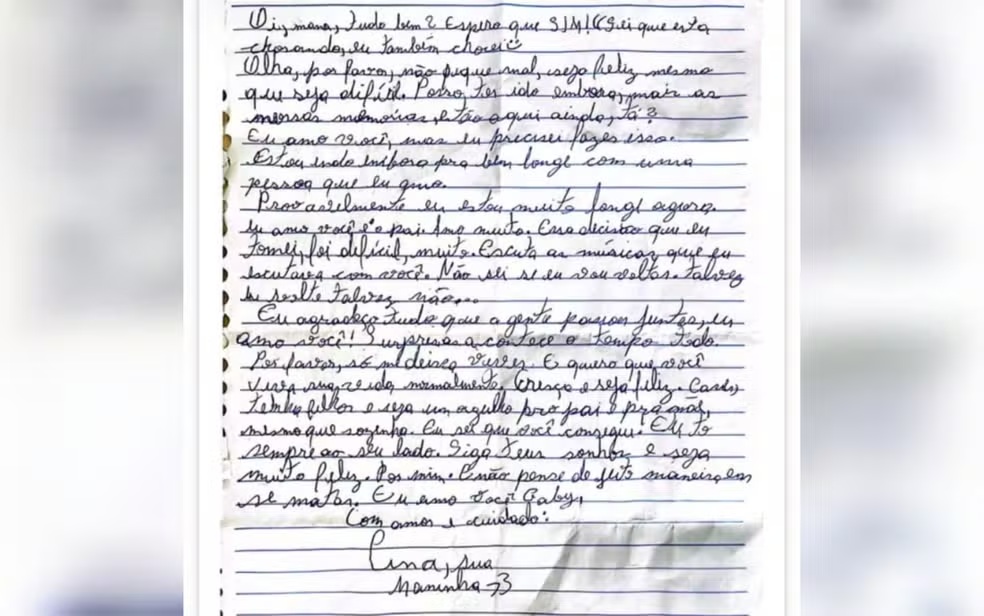 Oi, mana, tudo bem? Espero que SIM! (Sei que esta
chorando, eu também chorei
Olha, por favor, não fique mal, seja feliz mesmo
que seja difícil. Posso ter ido embora, mais as
nossas memórias estão aqui ainda, tá?
Eu amo você, mas eu precisei fazer isso.
Estou indo embora pra bem longe com uma
pessoa que eu amo.
Provavelmente eu estou muito longe agora.
Eu amo você e o pai. Amo muito. Essa decisão que eu
tomei, foi difícil, muito. Escuta as músicas que eu
escutava com você. Não sei se eu vou voltar. Talvez
eu volte talvez não...
Eu agradeço tudo que a gente passou juntas, eu
amo você! Surpresas acontece o tempo todo.
Por favor, só me deixa viver. E quero que você
viva sua vida normalmente. Cresça e seja feliz. Case,
tenha filhos e seja um orgulho pro pai e pra mãe,
mesmo que sozinha. Eu sei que você consegue. Eu to
sempre ao seu lado. Siga teus sonhos e seja
muito feliz. Por mim. E não pense de jeito maneira em
se matar. Eu amo você Gaby,
Com amor e cuidado:
sua
Maninha <3